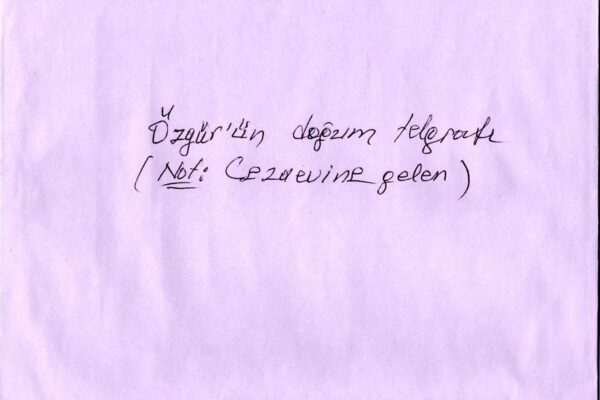 Özgür'ün doğum telgrafı
(Not: Cezaevine gelen)